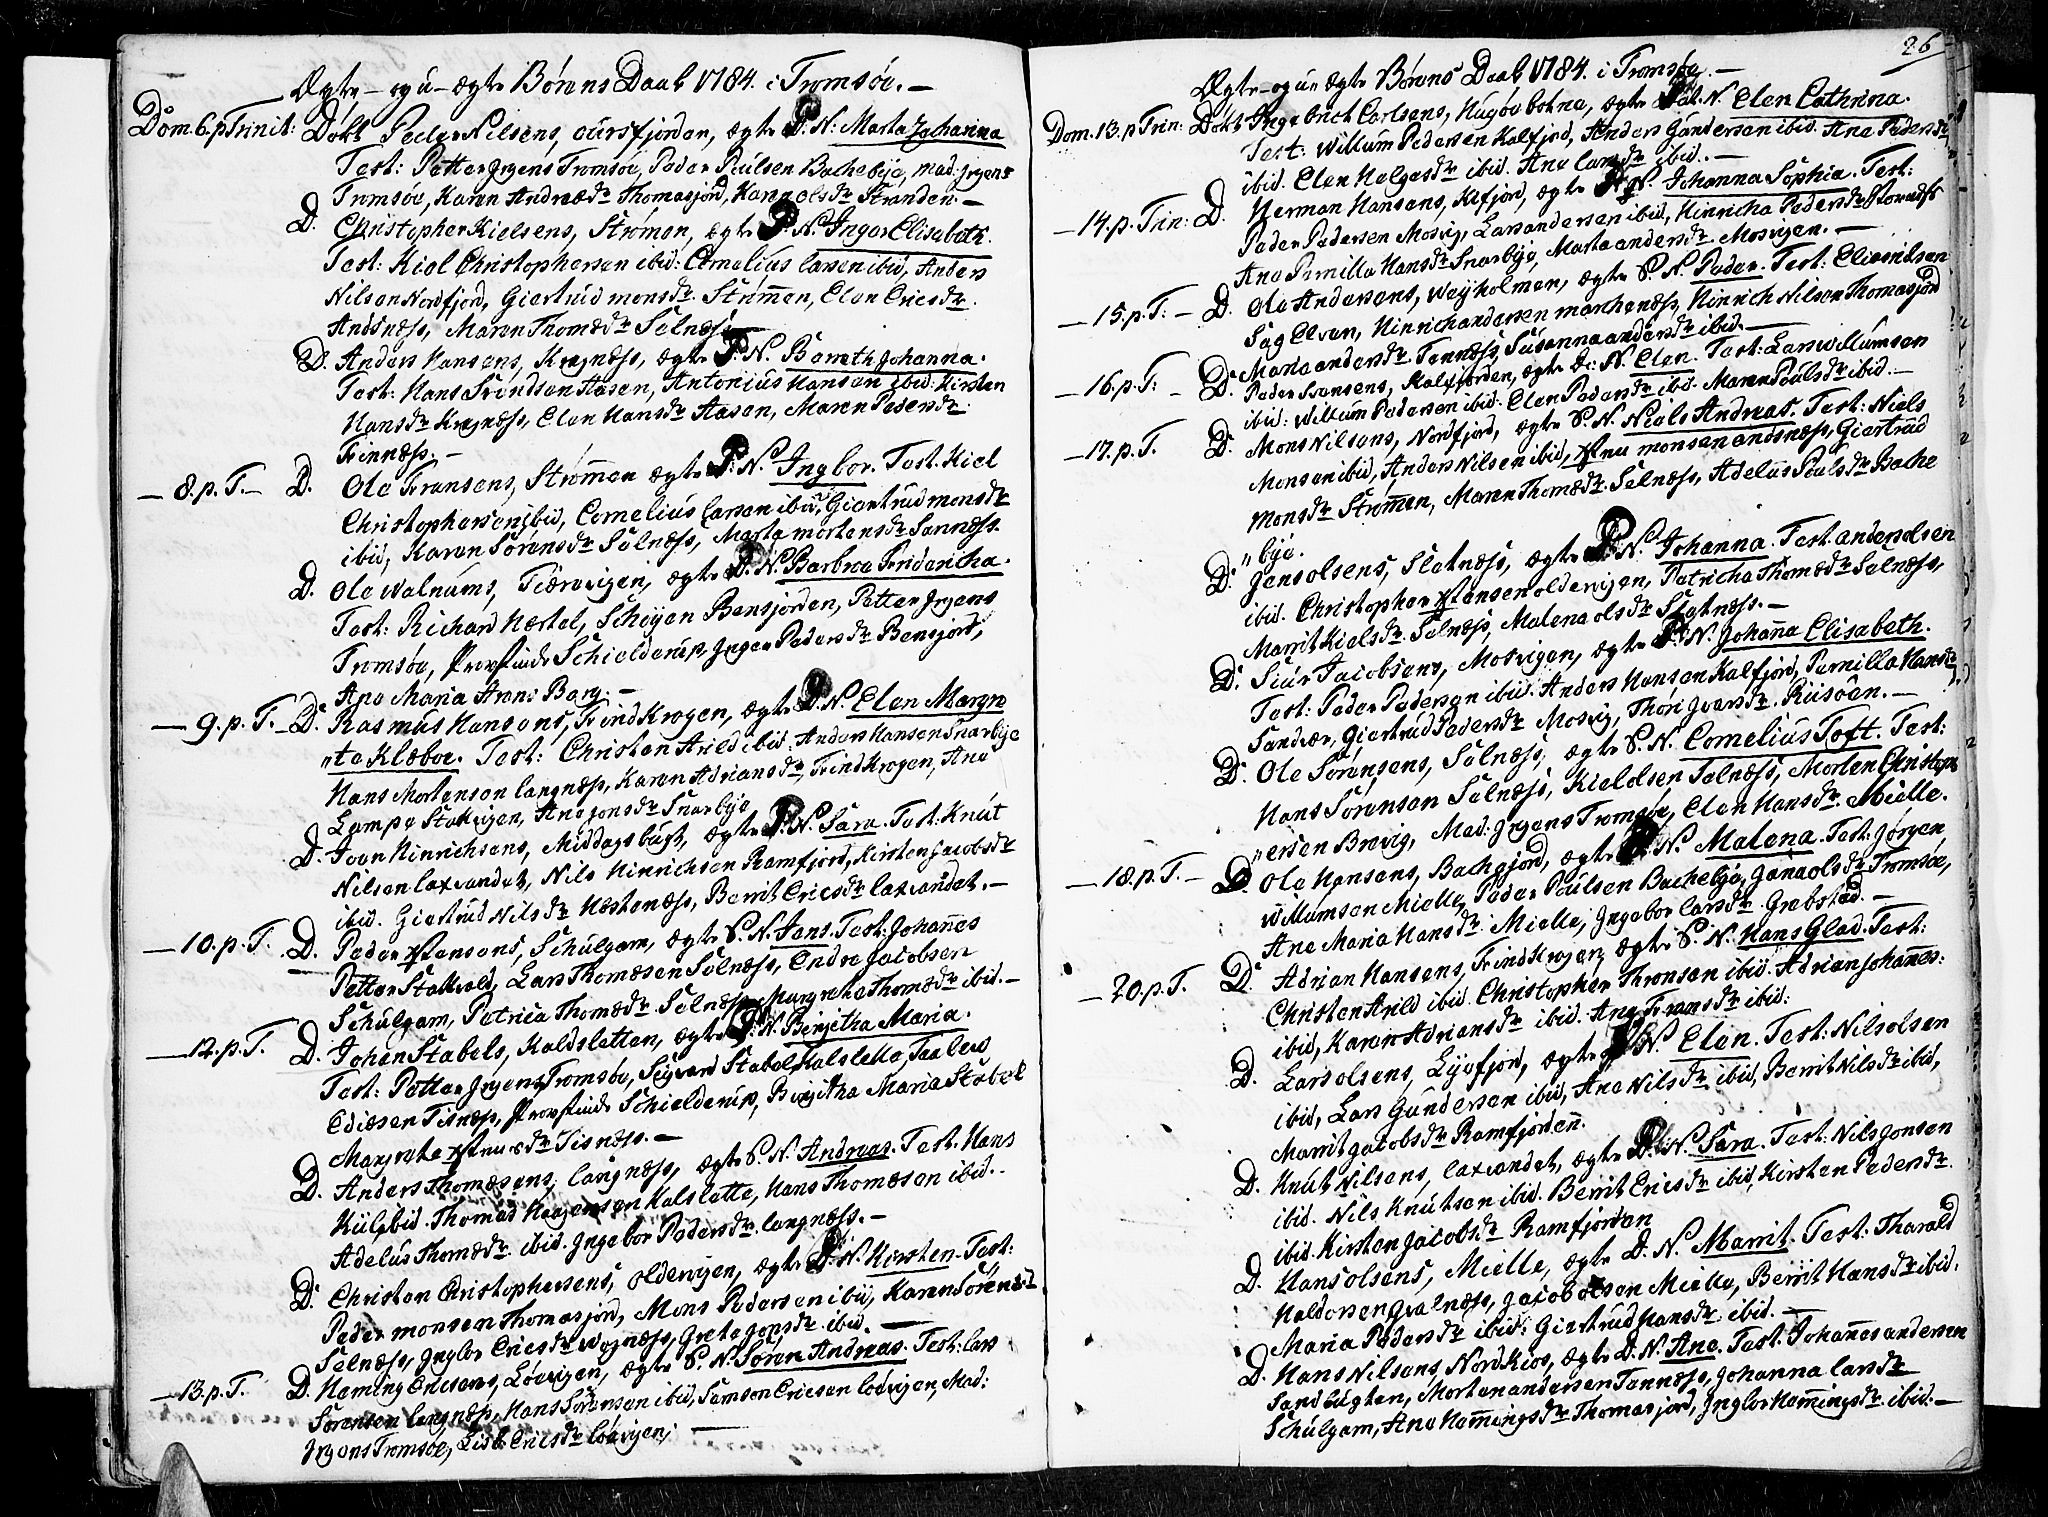 Ægte- og u-ægte Børens Daab 1784. i Tromsøe.-
Dom. 6. p Trinit: Døbt Peder Nilsens, oursfjorden, ægte P. N: Marta Johanna
Test: Petter Jrgens Tromsøe, Peder Paulsen Bachebye, Mad: Jrgens
Tromsøe, Karen Andreædr Thomasjord, Karen olsdr Stranden.-
D. Christopher Kielsens, Strømen, ægte P. N. Ingor Elisabeth.
Test: Kiel Christophersen ibid: Cornelius larsen ibid, Anders
Nilsen Nordfjord, Giertrud monsdr. Strømen, Elen Ericsdr.
Andsnæss, Maren Thomædr Selnæss.
D. Anders Hansens, Kragnæss, ægte P. N. Bereth Johanna.
Test: Hans Svendsen Aasen, Antonius Hansen ibid: Kirsten
Hansdr Kragnæss, Elen Hansdr Aasen, Maren Pedersdr
Finnæss.-
- 8. p. T.- D. Ole Fransens, Strømen ægte P: N. Ingbor. Test. Kiel
Christophersen ibid, Cornelius larsen ibid, Giertrud monsdr
ibid, Karen Sørensdr Selnæss, Marta mortensdr Sannæss.
D. Ole Walnums, Tiærevigen, ægte P. N. Barbroe Fridericha.
Test: Richard Hærtel, Schøyen Bensjorden, Petter Jrgens
Tromsøe, Provstinde Schielderup, Jnger Pedersdr Bensjord,
Ane Maria Arne Borg.-
- 9. p. T.- D. Rasmus Hansens, Trindkrogen, ægte P. N. Elen Margre
"te Klæboe. Test: Christen Arild ibid: Anders Hansen Snarbye
Hans Mortensen langnæss, Karen Adriansdr, Trindkrogen, Ane
Lampe Stakvigen, Ane jonsdr Snarbye,
D. Iver Hinrichsens, Middagsbugt, ægte P. N. Sara. Test: Knut
Nilsen laxvandet, Nils Hinrichsen Ramfjord, Kirsten jacobsdr
ibid. Giertrud Nilsdr Hestenæss, Berrit Ericsdr laxvandet.-
- 10. p. T. D. Peder Xstensens, Schulgam, ægte P. N. Jens. Test: Johañes
Petter Stakvold, Lars Thomæsen Selnæss, Endre Jacobsen
Schulgam, Petricia Thomædr Selnæss, Margrete Thomædr ibid.-
- 12. p. T. D. Johan Stabels, Kaldsletten, ægte P. N. Birgitha Maria.
Test: Petter Jrgens Tromsøe, Sigvard Stabel Kalslette, Faabers
Ediæsen Tisnæss, Provstinde Schielderup, Birgitha Maria Stabel
Margrete Xstensdr Tisnæss.-
D. Anders Thomæsens, langnæss, ægte P. N. Andreas. Test. Hans
Kiil ibid. Thomas Haagensen Kalslette, Hans Thomæsen ibid.
Adelus Thomædr. ibid. Jngebor Pedersdr. langnæss.-
D. Christen Christophersens, oldervigen, ægte P. N. Kirsten. Test:
Peder monsen Thomasjord, Mons Pedersen ibid, Karen Sørensd
Selnæss, Jngbor Ericsdr Wognæss, Grete jonsdr ibid.-
- 13. p. T. D. Heming Ericsens, Løvigen, ægte P. N. Søren Andreas. Test: lars
Sørensen langnæss, Hans Sørensen ibid, Samson Ericsen Løvigen, Mad:
Jrgens Tromsøe, Lisb. Ericsdr Løvigen,-
26
Ægte- og u- ægte Børens Daab 1784. i Tromsøe.-
Dom. 13. p Trin: Døbt Ingebrict Carlsens, Hugøebotne, ægte N. Elen Cathrina.
Test: Willum Pedersen Kalfjord, Anders Gundersen ibid. Ane Pedersdr
ibid. Elen Helgesdr ibid. Ane larsdr ibid.-
- 14. p. Trin: D. Herman Hansens, Kifjord, ægte P. N. Johanna Sophia. Test:
Peder Pedersen Mosvig, Lars andersen ibid, Hinricha Pedersdr
Ane Pernilla Hansdr Snarbye, Marta andersdr Mosvigen.-
- 15. p. T:- D. Ole Andersens, Weyholmen, ægte P. N. Peder. Test: Elias nilsen
Sag Elven, Hinrich andersen marhenæss, Hinrich Nilsen Thomasjord
Maria andersdr Tennæss, Susanna andersdr ibid.-
- 16. p. T:- D. Peder Svensens, Kalfjorden, ægte N. Elen. Test: Lars willumsen
ibid: Willum Pedersen ibid: Elen Pedersdr ibid. Maren Paulsdr ibid.-
- 17. p. T. D. Mons Nilsens, Nordfjord, ægte P. N. Niels Andreas. Test: Niels
Monsen ibid, Anders Nilsen ibid, Xten monsen andsnæss, Giertrud
Monsdr Strømen, Maren Thomædr Selnæss, Adelus Paulsdr Bache
"bye.
D. Jens olsens, Sletnæss, ægte P. N. Johanna. Test. anders olsen
ibid. Christopher Xstensen oldervigen, Petricha Thomædr Selnæss,
Marrit Kielsdr. Selnæss, Malena olsdr Sletnæss.-
D. Siur Jacobsens, Mosvigen, ægte P. N. Johaña Elisabeth.
Test: Peder Pedersen ibid: Anders Hansen Kalfjord, Pernilla Hansdr
Sandvær, Giertrud Pedersdr Mosvig, Thori Jversdr. Riisøen.-
D. Ole Sørensens, Selnæss, ægte P. N. Cornelius Toft. Test:
Hans Sørensen Selnæss, Kiel olsen Selnæss, Morten Christoph
"ersen Brevig, Mad: Jrgens Tromsøe, Elen Hansdr. Mielle.
- 18. p. T.- D. Ole Hansens, Bachejord, ægte P. N. Malena. Test: Jørgen
Willumsen Mielle, Peder Paulsen Bachebye, Jana olsdr Tromsøe,
Ane Maria Hansdr. Mielle, Jngebor larsdr. Grebstad.-
- 20. p. T. D. Adrian Hansens, Trindkrogen, ægte P. N. Hans Glad. Test:
Christen Arild ibid. Christopher Thronsen ibid. Adrian johañes:
ibid, Karen Adriansdr ibid. Ane Fransdr ibid:
D. Lars olsens, Lyofjord, ægte N. Elen. Test: Nils olsen
ibid, Lars Gundersen ibid, Ane Nilsdr ibid, Berrit Nilsdr ibid,
Marrit jacobsdr Ramfjorden.
D. Knut Nilsens, laxvandet, ægte P. N. Sara. Test: Nils Jonsen
ibid. Nils Knutsen ibid. Berrit Ericsdr ibid, Kirsten Pedersdr.
ibid. Kirsten Jacobsdr Ramfjorden
D. Hans olsens, Mielle, ægte D. N. Marrit. Test: Tharald
Haldorsen Gvalnæss, jacob olsen Mielle, Berrit Hansdr ibid.
Maria Pedersdr ibid: Giertrud Hansdr. ibid.-
D. Hans Nilsens, Nordkios, ægte D. N. Ane. Test: Johañes andersen
Sand bugten, Morten andersen Tennæss, Johanna larsdr
Schulgam, Ane Hemingsdr Thomasjord, Jngbor Hemingsdr ibid.-